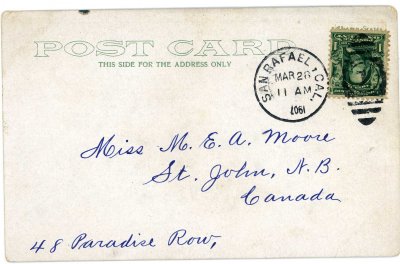 POST CARD
THIS SIDE FOR THE ADDRESS ONLY
SAN RAFAEL, CAL.
MAR 26
11 AM
1907
1 1
Miss M. E. A. Moore
St. John, N.B.
Canada
48 Paradise Row,